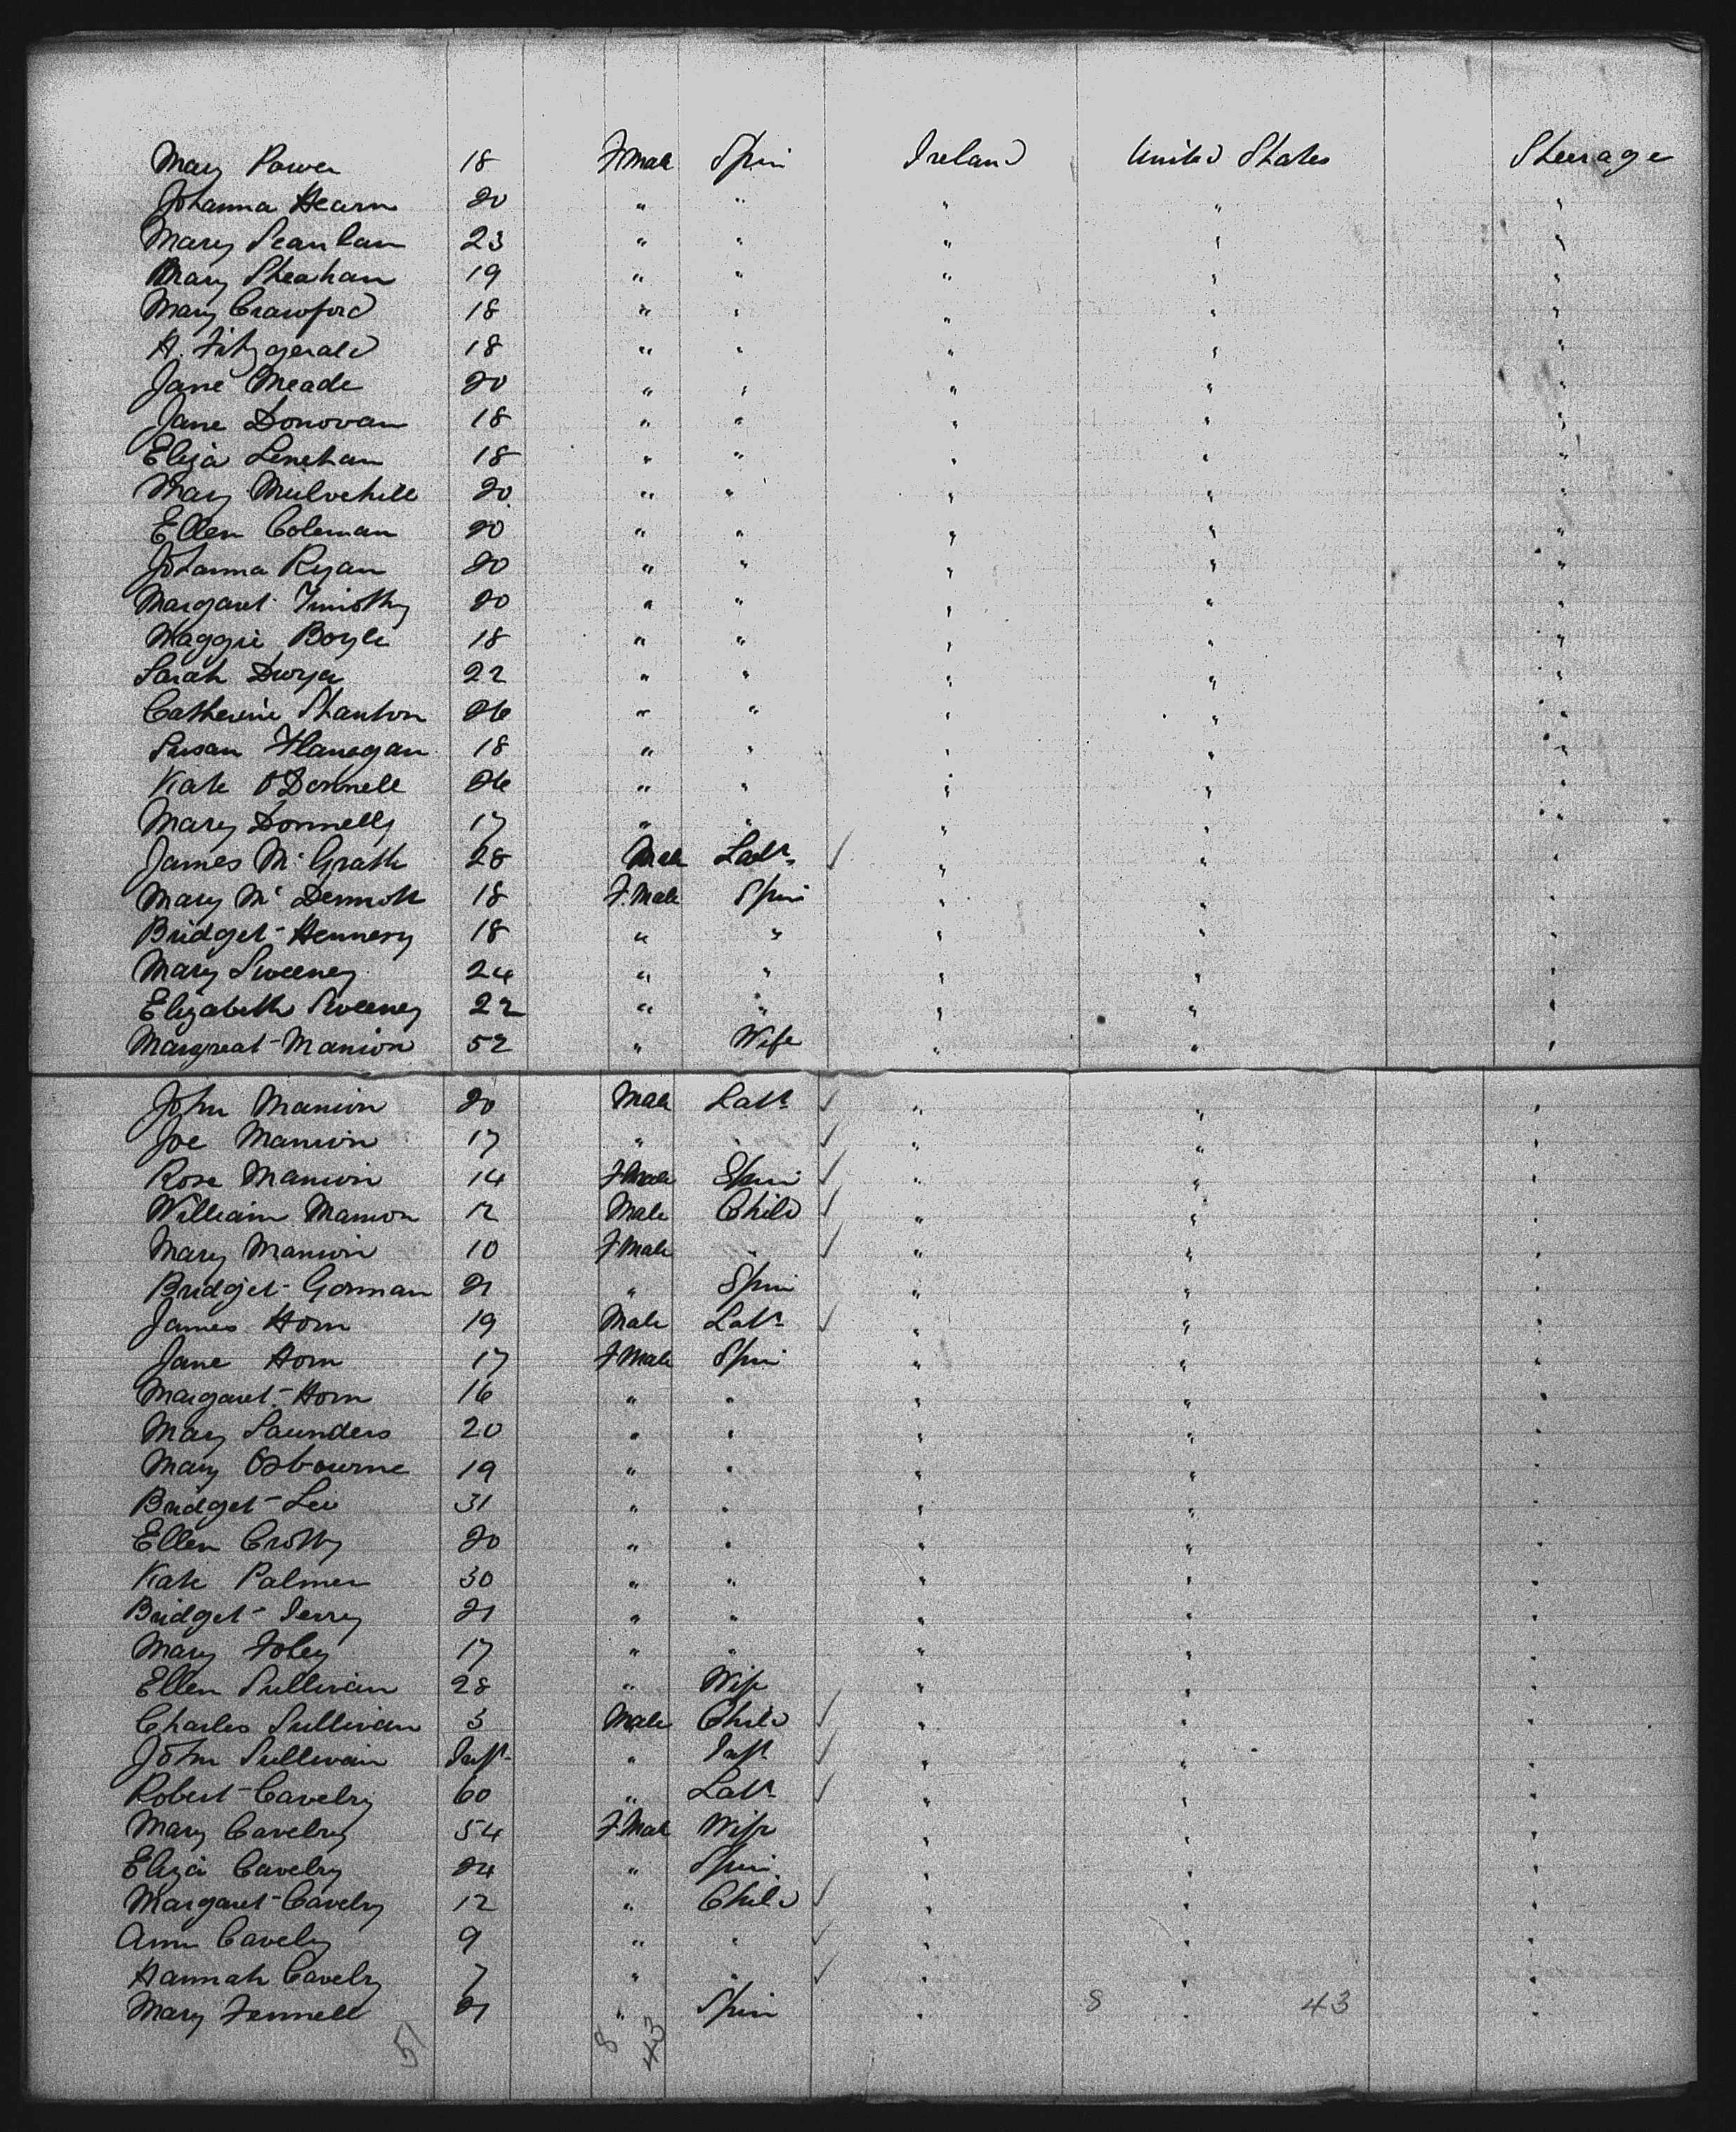 Mary Power 18 F.Male Spin Ireland United States Steerage
Johanna Hearn 20 " " " " "
Mary Scanlan 23 " " " " "
Mary Sheahan 19 " " " " "
Mary Crawford 18 " " " " "
H. Fitzgerald 18 " " " " "
Jane Meade 20 " " " " "
Jane Donovan 18 " " " " "
Eliza Lenehan 18 " " " " "
Mary Mulvehill 20 " " " " "
Ellen Coleman 20 " " " " "
Johanna Ryan 20 " " " " "
Margaret Timothy 20 " " " " "
Maggie Boyle 18 " " " " "
Sarah Dwyer 22 " " " " "
Catherine Stanton 26 " " " " "
Susan Flanegan 18 " " " " "
Kate O'Donnell 26 " " " " "
Mary Donnelly 17 " " " " "
James McGrath 28 Male Labr ✓ " " "
Mary McDermott 18 F.Male Spin " " "
Bridget Hennesy 18 " " " " "
Mary Sweeney 24 " " " " "
Elizabeth Sweeney 22 " " " " "
Margreat Manion 52 " Wife " " "
John Manion 20 Male Labr ✓ " " "
Joe Manion 17 " " ✓ " " "
Rose Manion 14 F.Male Spin ✓ " " "
William Manion 12 Male Child ✓ " " "
Mary Manion 10 F.Male " ✓ " " "
Bridget Gorman 21 " Spin " " "
James Horn 19 Male Labr ✓ " " "
Jane Horn 17 F.Male Spin " " "
Margaret Horn 16 " " " " "
Mary Saunders 20 " " " " "
Mary Osbourne 19 " " " " "
Bridget Lee 31 " " " " "
Ellen Crotty 20 " " " " "
Kate Palmer 30 " " " " "
Bridget 21 " " " " "
Mary Foley 17 " " " " "
Ellen Sullivan 28 " Wife " " "
Charles Sullivan 3 Male Child ✓ " " "
John Sullivan Inft " Inft ✓ " " "
Robert Cavelry 60 " Labr ✓ " " "
Mary Cavelry 54 F.Male Wife " " "
Eliza Cavelry 24 " Spin " " "
Margaret Cavelry 12 " Child ✓ " " "
Ann Cavelry 9 " " ✓ " " "
Hannah Cavelry 7 " " ✓ " " "
Mary Fennell 21 " Spin " 8 " 43 "
51 8 43